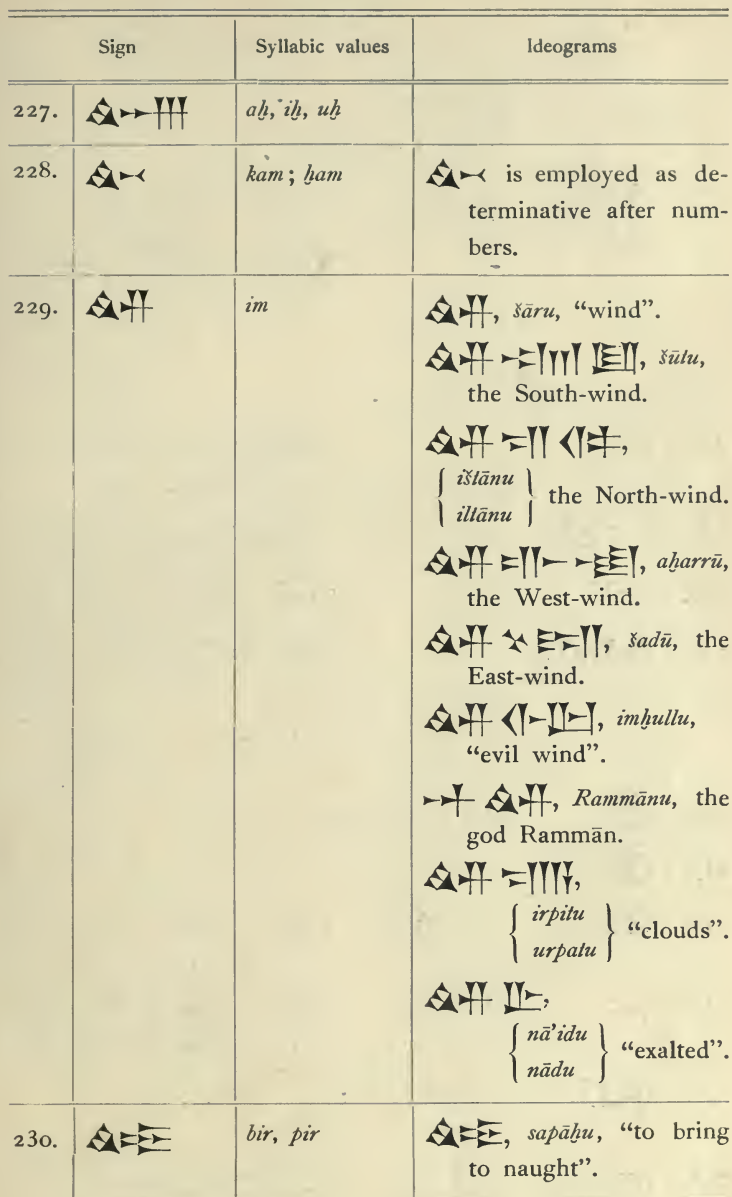 Sign Syllabic values Ideograms
227. 𒄴 aḫ, iḫ, uḫ
228. 𒄰 kam; ḫam 𒄰 is employed as de-
terminative after num-
bers.
229. 𒅎 im 𒅎, šāru, “wind”.
𒅎, šūtu,
the South-wind.
𒅎 𒋛 𒁲,
ištānu
iltānu
the North-wind.
𒅎 𒈥 𒌅, aḫarrū,
the West-wind.
𒅎 𒆳 𒊏, šadū, the
East-wind.
𒅎 𒅆𒌨, imḫullu,
“evil wind”.
𒀭 𒅎, Rammānu, the
god Rammān.
𒅎 𒋛𒀀,
irpitu
urpatu
“clouds”.
𒅎 𒌇,
nā’idu
nādu
“exalted”.
230. bir, pir sapāḫu, “to bring
to naught”.